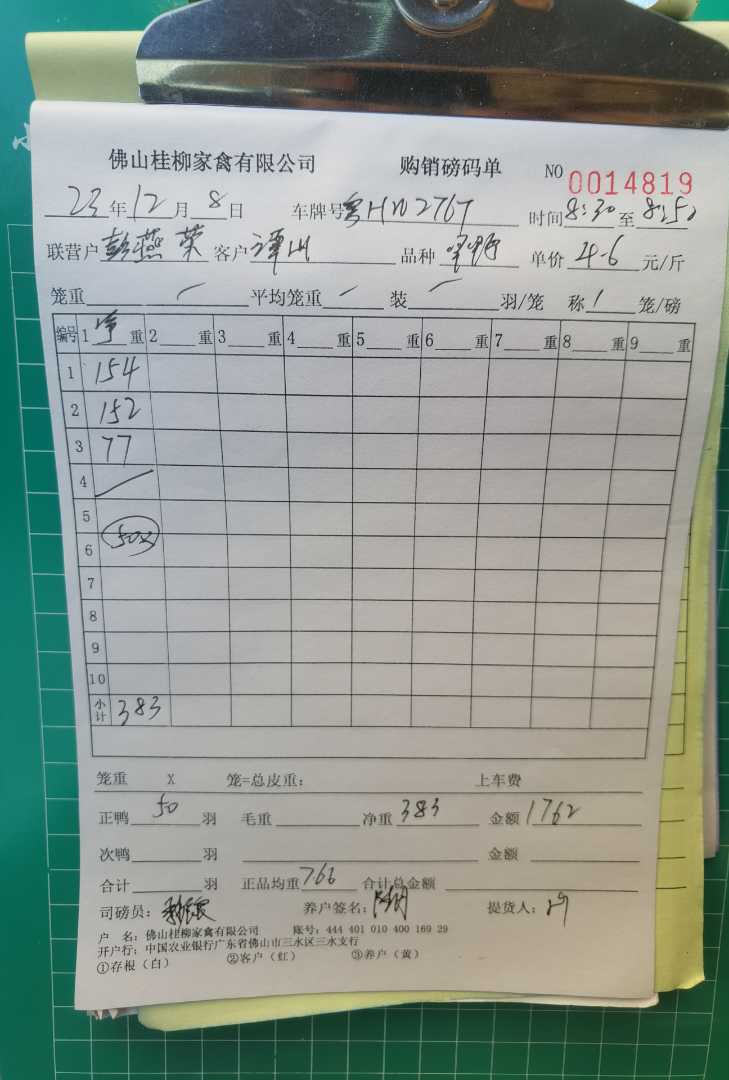 佛山桂柳家禽有限公司 购销磅码单 NO 0014819
23年12月8日 车牌号粤HW2767 时间8:30至8:52
联营户彭燕荣 客户谭山 品种 单价4.6元/斤
笼重 / 平均笼重 / 装 / 羽/笼 称1笼/磅
编号 1净重 2重 3重 4重 5重 6重 7重 8重 9重
1 154
2 152
3 77
4 /
5
6 50只
7
8
9
10
小计 383
笼重 X 笼=总皮重: 上车费
正鸭50羽 毛重 净重383 金额1762
次鸭 羽 金额
合计 羽 正品均重766 合计总金额
司磅员: 养户签名: 提货人:
户 名: 佛山桂柳家禽有限公司 账号: 444 401 010 400 169 29
开户行: 中国农业银行广东省佛山市三水区三水支行
①存根(白) ②客户(红) ③养户(黄)